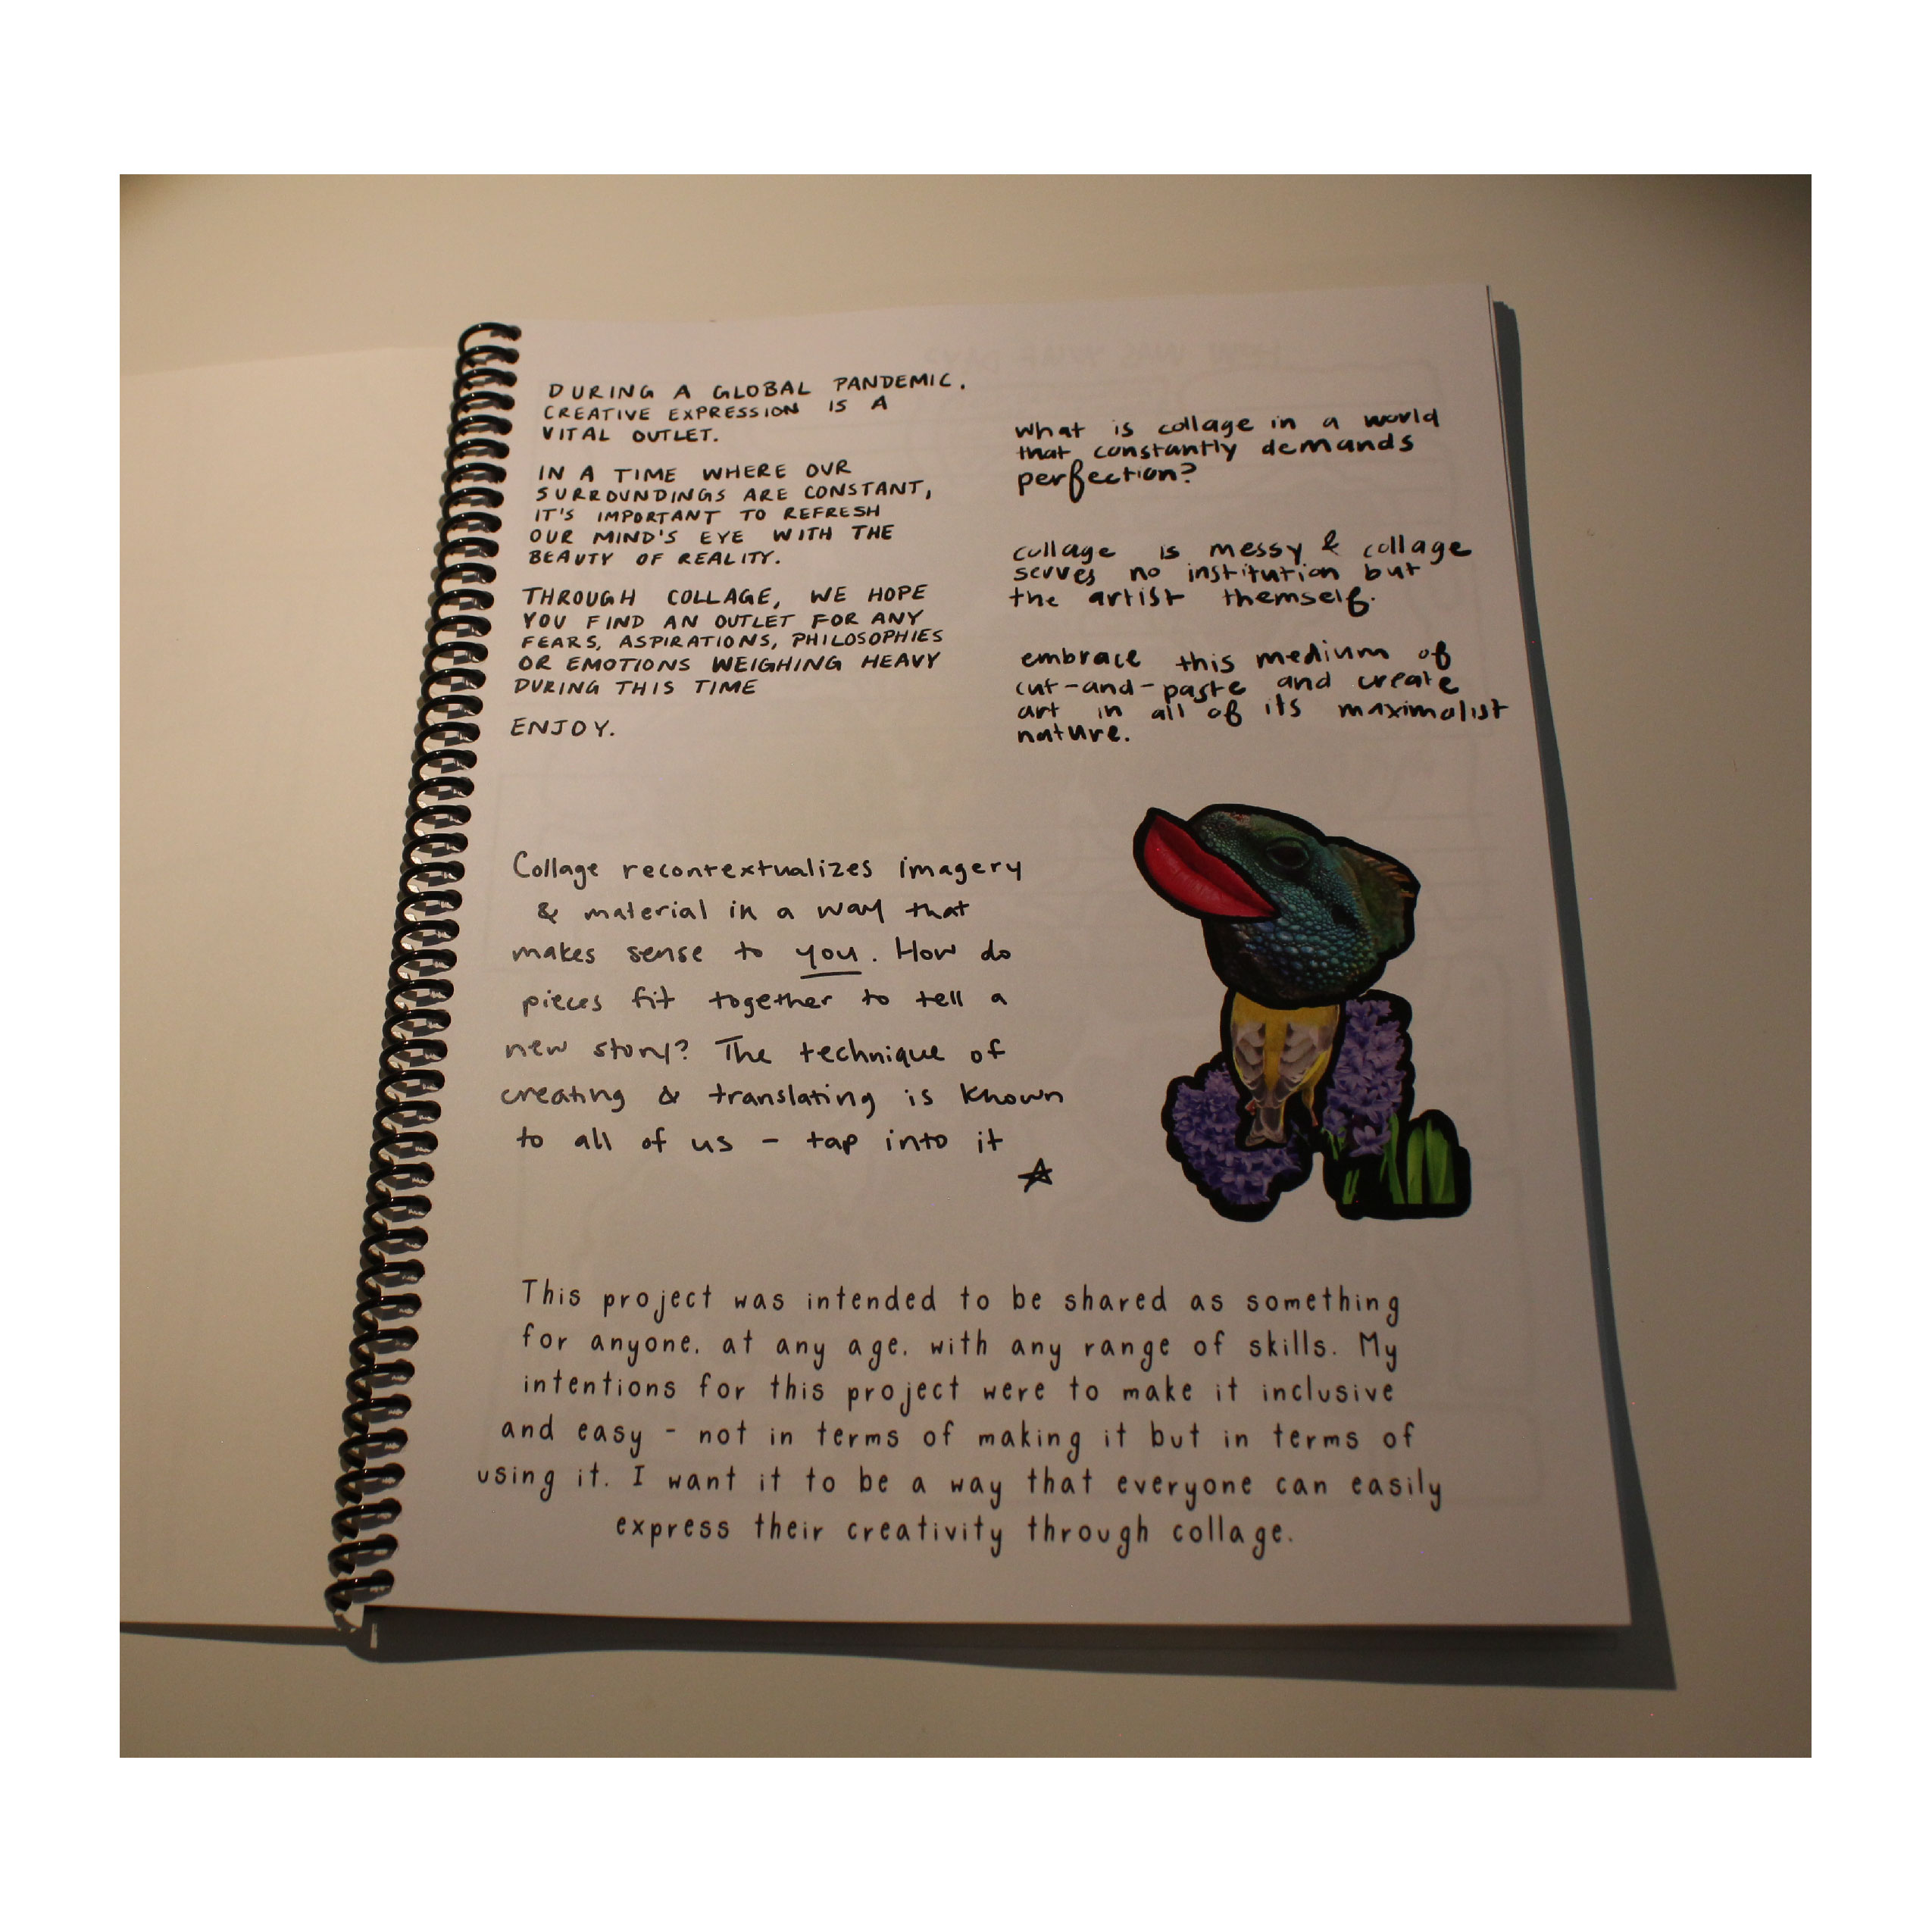 DURING A GLOBAL PANDEMIC.
CREATIVE EXPRESSION IS A
VITAL OUTLET.
IN A TIME WHERE OUR
SURROUNDINGS ARE CONSTANT,
IT'S IMPORTANT TO REFRESH
OUR MIND'S EYE WITH THE
BEAUTY OF REALITY.
THROUGH COLLAGE, WE HOPE
YOU FIND AN OUTLET FOR ANY
FEARS, ASPIRATIONS, PHILOSOPHIES
OR EMOTIONS WEIGHING HEAVY
DURING THIS TIME
ENJOY.
what is collage in a world
that constantly demands
perfection?
collage is messy & collage
serves no institution but
the artist themself.
embrace this medium of
cut-and-paste and create
art in all of its maximalist
nature.
Collage recontextualizes imagery
& material in a way that
makes sense to you. How do
pieces fit together to tell a
new story? The technique of
creating & translating is known
to all of us - tap into it
This project was intended to be shared as something
for anyone. at any age. with any range of skills. My
intentions for this project were to make it inclusive
and easy - not in terms of making it but in terms of
using it. I want it to be a way that everyone can easily
express their creativity through collage.